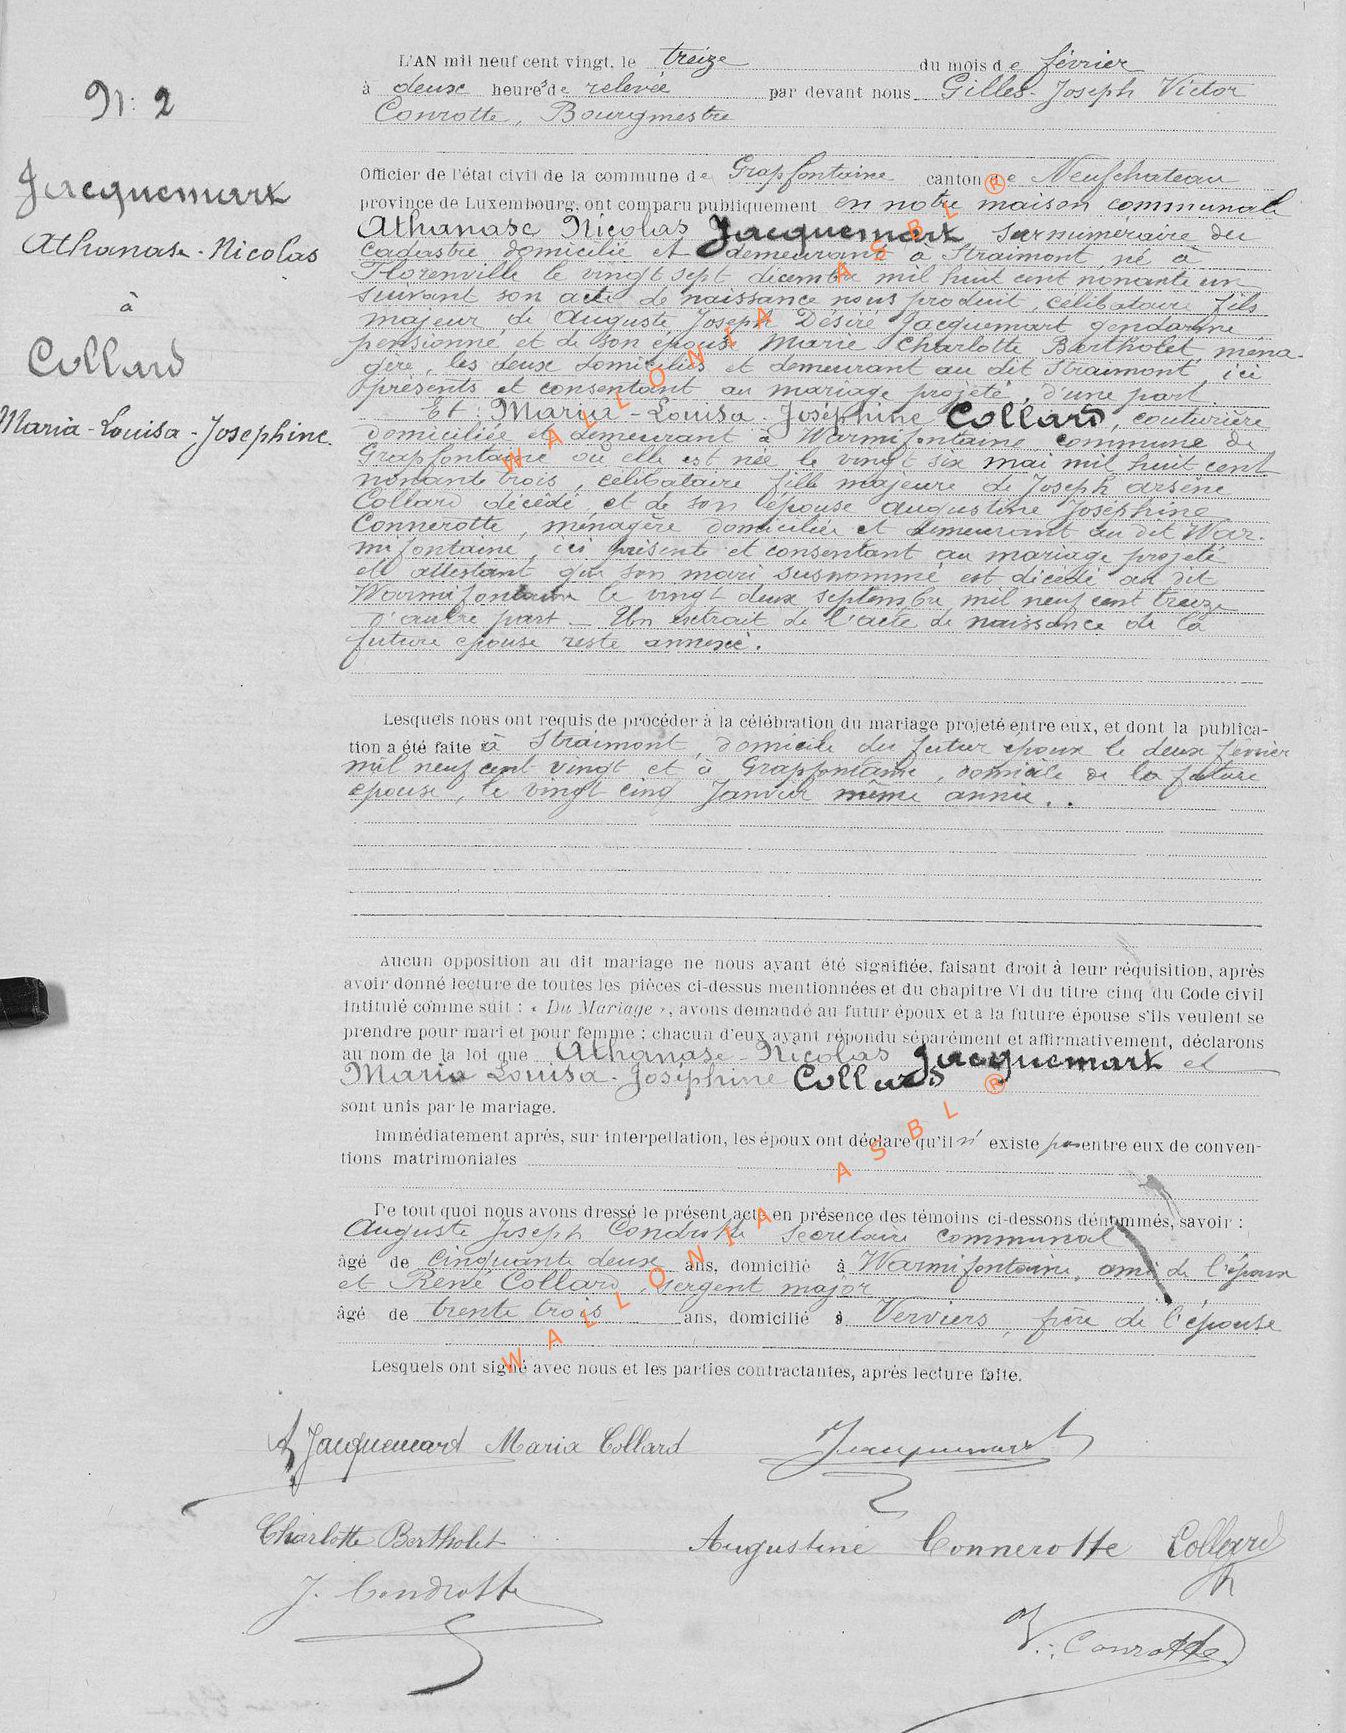 N: 2
Jacquemart
Athanase-Nicolas
à
Collard
Maria-Louisa-Josephine.
L'AN mil neuf cent vingt, le treize du mois de février
à deux heures de relevée par devant nous Gilles-Joseph Victor
Conrotte, Bourgmestre
Officier de l'état civil de la commune de Grapfontaine canton de Neufchateau
province de Luxembourg, ont comparu publiquement en notre maison communale
Athanase Nicolas Jacquemart surnuméraire du
cadastre domicilié et demeurant à Straimont né à
Florenville le vingt sept décembre mil huit cent nonante un
suivant son acte de naissance nous produit, célibataire fils
majeur de Auguste Joseph Désiré Jacquemart gendarme
pensionné et de son épouse Marie Charlotte Bertholet, ména-
gère, les deux domiciliés et demeurant au dit Straimont, ici
présents et consentant au mariage projeté, d'une part.
Et: Maria-Louisa-Joséphine Collard, couturière
domiciliée et demeurant à Warmifontaine commune de
Grapfontaine où elle est née le vingt six mai mil huit cent
nonante trois, célibataire fille majeure de Joseph arsène
Collard décédé et de son épouse augustine joséphine
Connerotte, ménagère domiciliée et demeurant au dit War-
mifontaine, ici présente et consentant au mariage projeté
et attestant que son mari susnommé est décédé au dit
Warmifontaine le vingt deux septembre mil neuf cent treize
d'autre part - Un extrait de l'acte de naissance de la
future épouse reste annexé.
Lesquels nous ont requis de procéder à la célébration du mariage projeté entre eux, et dont la publica-
tion a été faite à Straimont, domicile du futur époux le deux février
mil neuf cent vingt et à Grapfontaine, domicile de la future
épouse, le vingt cinq Janvier même année..
Aucun opposition au dit mariage ne nous ayant été signifiée, faisant droit à leur réquisition, après
avoir donné lecture de toutes les pièces ci-dessus mentionnées et du chapitre VI du titre cinq du Code civil
intitulé comme suit : « Du Mariage », avons demandé au futur époux et à la future épouse s'ils veulent se
prendre pour mari et pour femme ; chacun d'eux ayant répondu séparément et affirmativement, déclarons
au nom de la loi que Athanase-Nicolas Jacquemart et
Maria Louisa-Joséphine Collard
sont unis par le mariage.
Immédiatement après, sur interpellation, les époux ont déclaré qu'il n'existe pas entre eux de conven-
tions matrimoniales
De tout quoi nous avons dressé le présent acte en présence des témoins ci-dessons dénommés, savoir :
Auguste Joseph Condrotte secrétaire communal
âgé de cinquante deux ans, domicilié à Warmifontaine, ami de l'époux
et René Collard, sergent major
âgé de trente trois ans, domicilié à Verviers, frère de l'épouse
Lesquels ont signé avec nous et les parties contractantes, après lecture faite.
A Jacquemart Maria Collard Jacquemart
Charlotte Bertholet Augustine Connerotte Collard
J. Condrotte
V. Conrotte
WALLONIA ASBL ®
WALLONIA ASBL ®